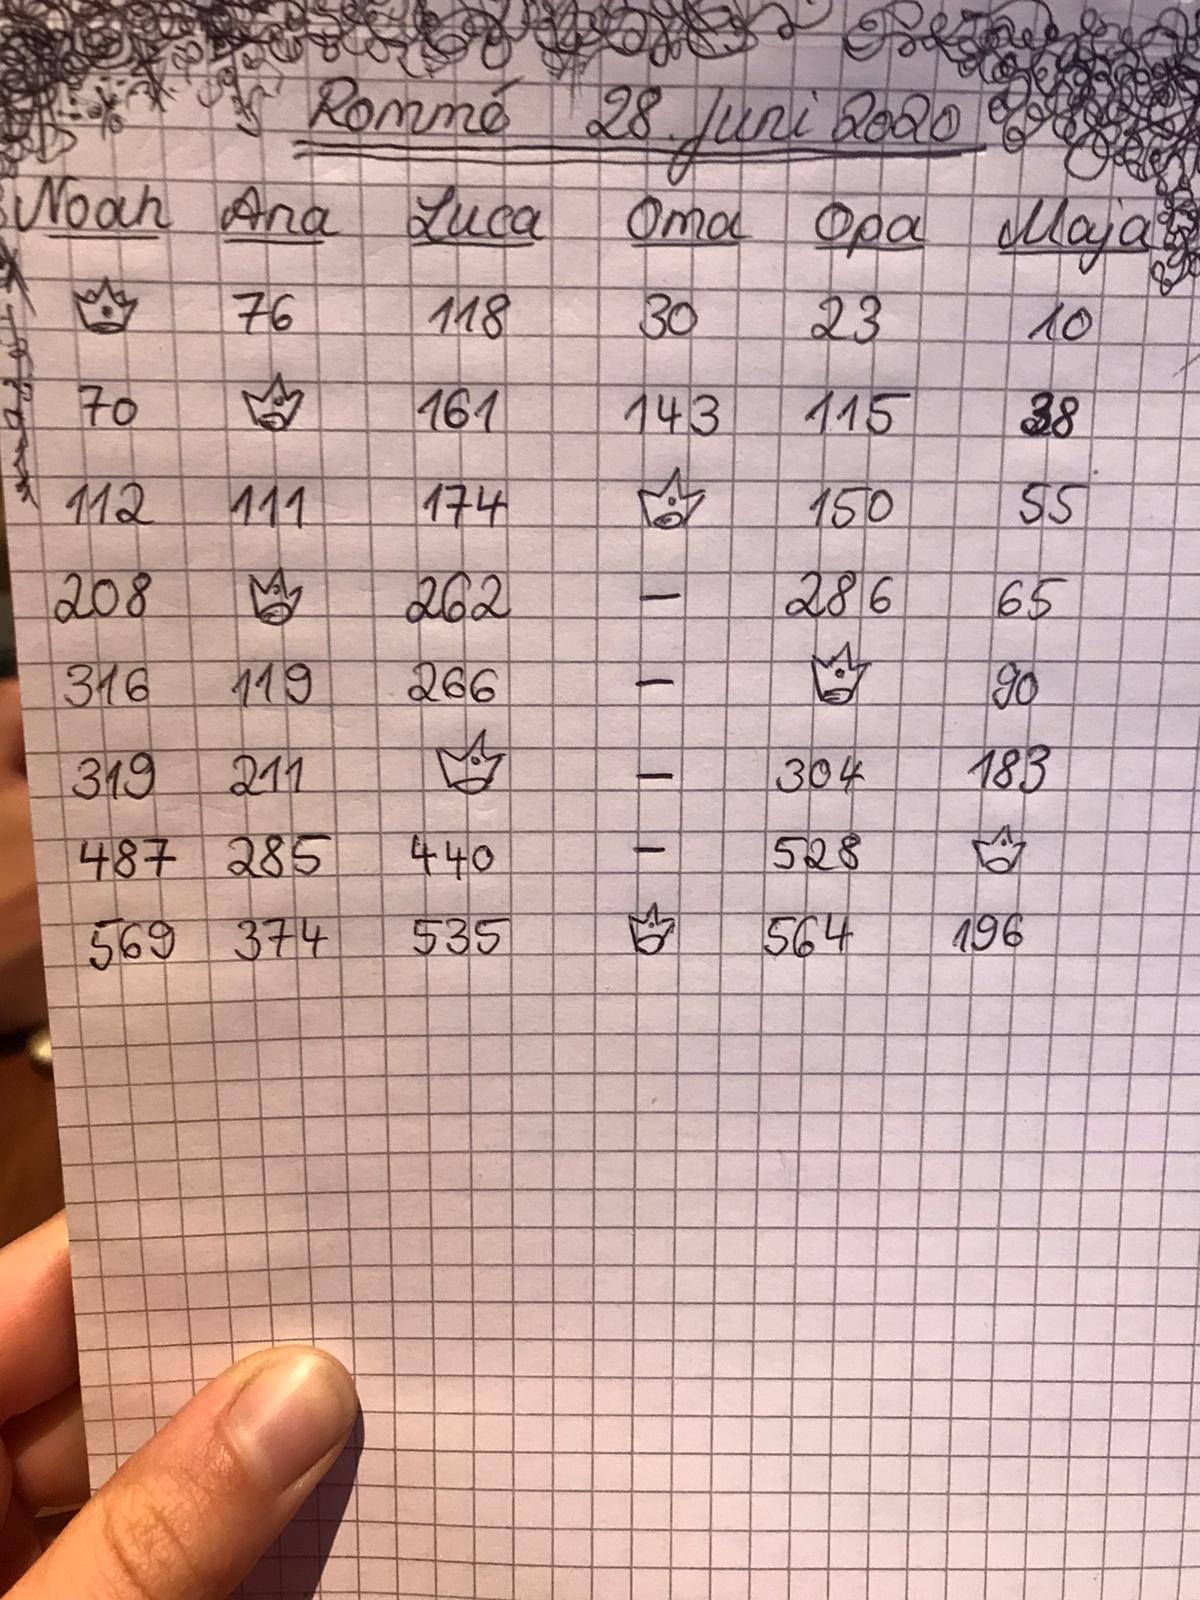 Rommé 28. Juni 2020
Noah Ana Luca Oma Opa Maja
76 118 30 23 10
70 161 143 115 38
112 111 174 150 55
208 262 – 286 65
316 119 266 – 90
319 211 – 304 183
487 285 440 – 528
569 374 535 564 196